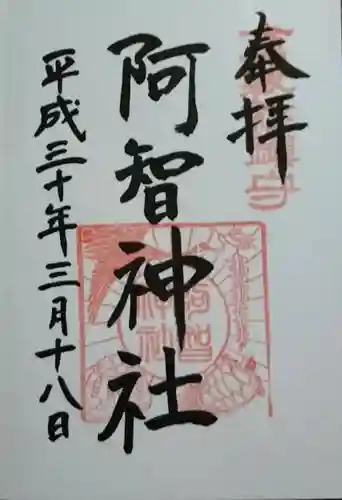 奉拝
阿智神社
平成三十年三月十八日
阿智
神社